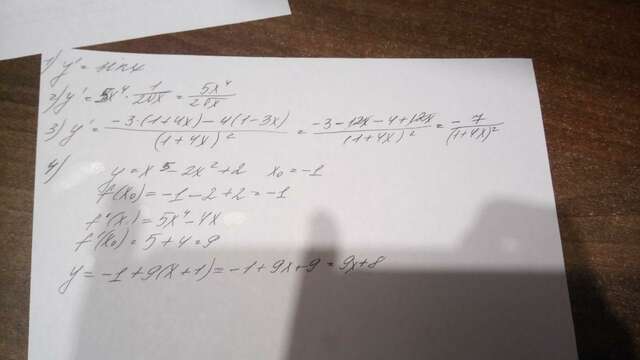 2) y' = 5x⁴ · 1/(2√x) = 5x⁴/(2√x)
3) y' = (-3·(1+4x)-4(1-3x))/(1+4x)² = (-3-12x-4+12x)/(1+4x)² = -7/(1+4x)²
4) y = x⁵ - 2x² + 2 x₀ = -1
f(x₀) = -1 - 2 + 2 = -1
f'(x) = 5x⁴ - 4x
f'(x₀) = 5 + 4 = 9
y = -1 + 9(x+1) = -1 + 9x + 9 = 9x + 8